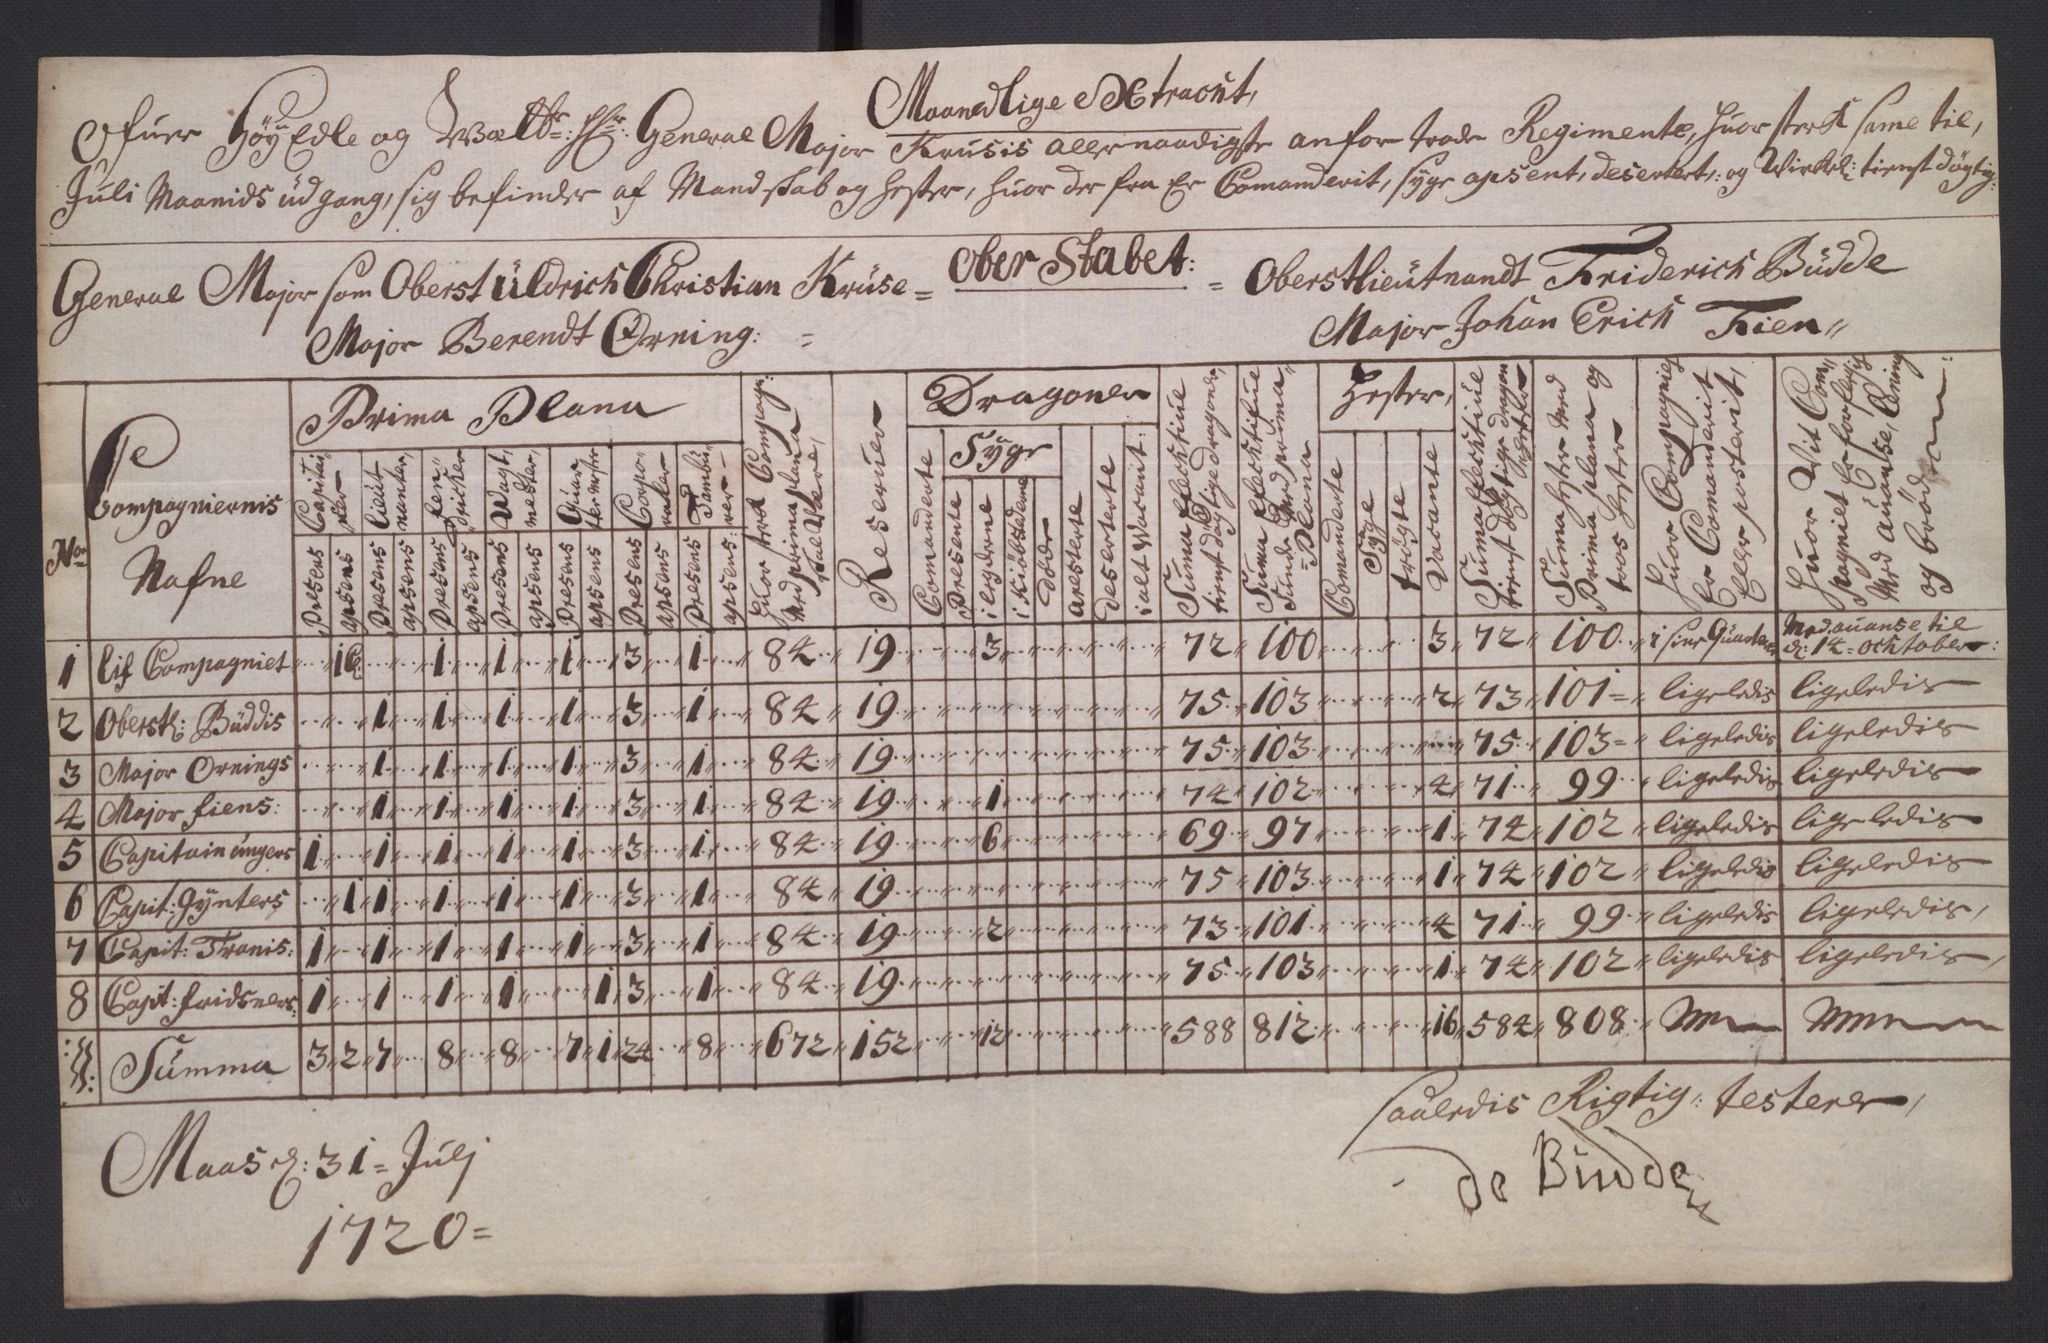 Maanedlige Extract,
Ofuer Höy Edle og General Major Krusis allernaadigste anfor trode Regimente, huor sterk same til,
Juli Maanids udgang, sig befinder af Mandskab og Hester, huor der fra Er Comanderit, syge apsent, desertert,: og Wirkel: tienstdögtig:
Ober Stabet:
General Major som Oberst Uldrich Christian Kruse = = Oberstlieutnandt Friderich Budde
Major Berendt Örning: = Major Johan Erich Fien
No: Compagniernis Nafne
Prima Plana
Capitainer Presens apsens
Lieutnanter Presens apsens
Fendricher Presens apsens
Wagtmester Presens apsens
Quartermester Presens apsens
Corporaler Presens apsens
Tambourer Presens apsens
Huor sterk Compagn: Med prima plana skal Være,
Reseruer
Dragoner
Comanderte
Syge
Presente i legderne
i Kiöbstederne
Döde
aresterte
deserterte
i alt Vacant:
Suma Efecktiue tienst dögtige dragoner,
Suma Efecktifue Med prima Plana
Hester,
Comanderte
Syge
Vacante
Suma Efecktiue tienst dögtige dragon hester
Suma hester Med Prima plana og tros hester
Huor Compagniet Er Comanderit Eller posterit,
Huor Vit Compagniet Er forpleyet Med auanse, Lening og bröd
1 Lif Compagniet 1 1 1 1 3 1 84 19 3 72 100 3 72 100 i sine Quarteer Med auanse til d: 14 = october:
2 Oberstl: Buddis 1 1 1 1 3 1 84 19 75 103 2 73 101 = ligeledis ligeledis
3 Major Ornings 1 1 1 1 3 1 84 19 75 103 75 103 = ligeledis ligeledis
4 Major fiens: 1 1 1 1 3 1 84 19 1 74 102 4 71 99 ligeledis ligeledis
5 Capitain ungers 1 1 1 1 1 3 1 84 19 6 69 97 1 74 102 ligeledis ligeledis
6 Capit: Gynters 1 1 1 1 1 3 1 84 19 75 103 1 74 102 ligeledis ligeledis
7 Capit: Franis: 1 1 1 1 1 3 1 84 19 2 73 101 4 71 99 ligeledis ligeledis,
8 Capit: fridsners: 1 1 1 1 1 3 1 84 19 75 103 1 74 102 ligeledis ligeledis,
Summa 3 2 7 8 8 7 1 24 8 672 152 12 588 812 16 584 808
Maas d: 31 = Julj
1720 =
saaledis Rigtig: testerer,
de Budde